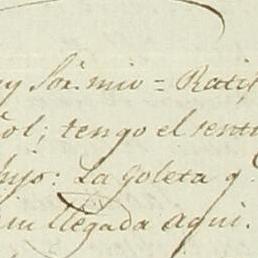 Sor. mio = Ratif
ol; tengo el senti
hijo: La Goleta q
llegada aqui.